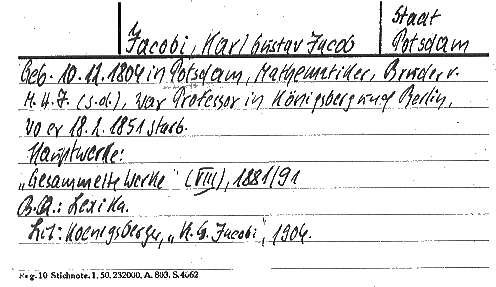 Jacobi, Karl Gustav Jacob
Staat
Potsdam
Geb. 10.12.1804 in Potsdam, Mathematiker, Bruder v.
M. H. J. (s.d.), war Professor in Königsberg und Berlin,
wo er 18.2.1851 starb.
Hauptwerke:
„Gesammelte Werke" (VIII), 1881/91
B.A.: Lexika.
Lit: Koenigsberger, „K. G. Jacobi", 1904.
Reg. 10 Stichnote. 1, 50, 232000, A. 803. S. 4662